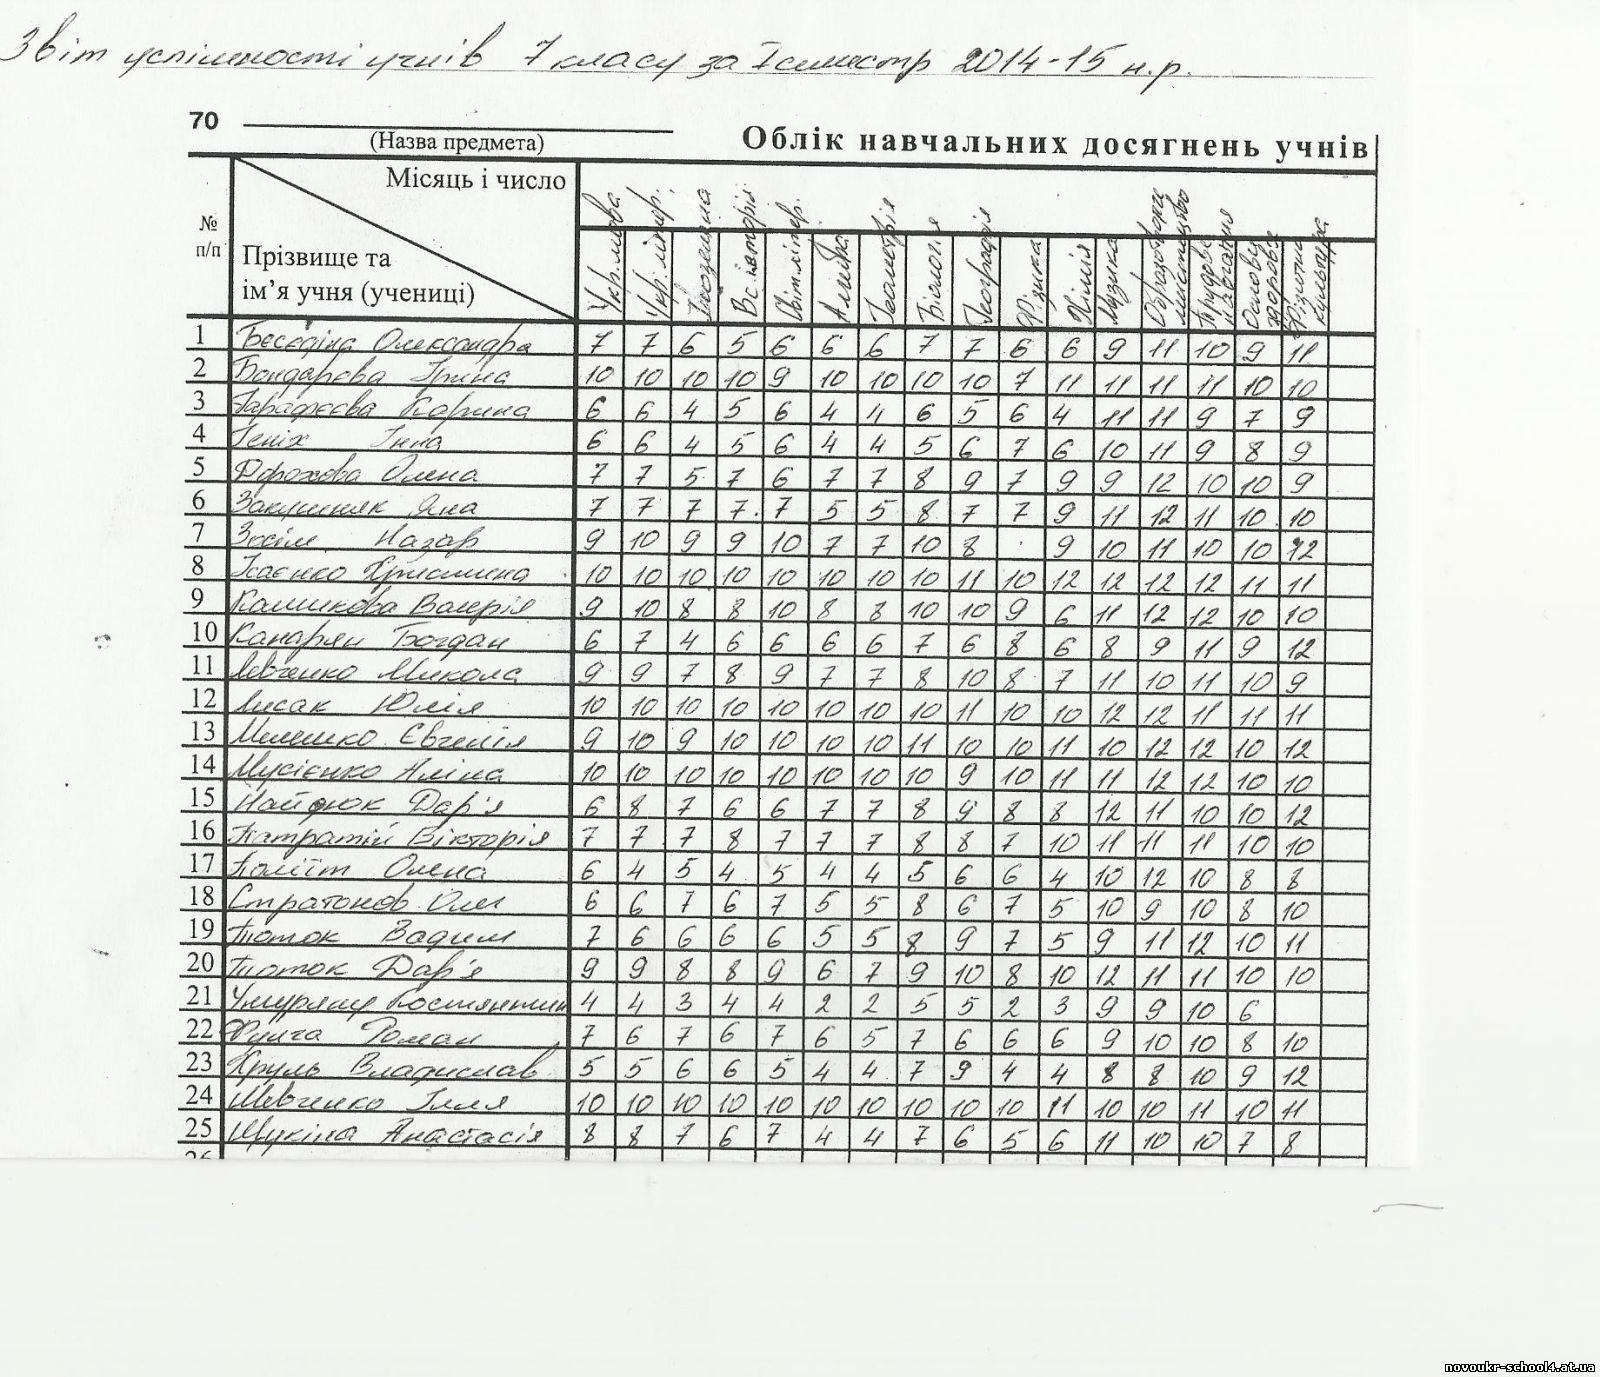 Звіт успішності учнів 7 класу за І семестр 2014-15 н.р.
70
(Назва предмета)
Облік навчальних досягнень учнів
№ п/п
Місяць і число
Прізвище та
ім’я учня (учениці)
Укр.мова Укр.літер. Іноземна Вс.історія Світ.літер. Алгебра Геометрія Біологія Географія Фізика Хімія Музика Образотворче мистецтво Трудове навчання Основи здоровья Фізична культура
1 Бєсєдіна Олександра 7 7 6 5 6 6 6 7 7 6 6 9 11 10 9 11
2 Бондарєва Ірина 10 10 10 10 9 10 10 10 10 7 11 11 11 11 10 10
3 Гарафєєва Карина 6 6 4 5 6 4 4 6 5 6 4 11 11 9 7 9
4 Геніх Інна 6 6 4 5 6 4 4 5 6 7 6 10 11 9 8 9
5 Дорохова Олена 7 7 5 7 6 7 7 8 9 7 9 9 12 10 10 9
6 Яна 7 7 7 7. 7 5 5 8 7 7 9 11 12 11 10 10
7 Назар 9 10 9 9 10 7 7 10 8 9 10 11 10 10 12
8 Ісаєнко Христина 10 10 10 10 10 10 10 10 11 10 12 12 12 12 11 11
9 Калшикова Валерія 9 10 8 8 10 8 8 10 10 9 6 11 12 12 10 10
10 Канарян Богдан 6 7 4 6 6 6 6 7 6 8 6 8 9 11 9 12
11 Левченко Микола 9 9 7 8 9 7 7 8 10 8 7 11 10 11 10 9
12 Лисак Юлія 10 10 10 10 10 10 10 10 11 10 10 12 12 11 11 11
13 Мелешко Євгенія 9 10 9 10 10 10 10 11 10 10 11 10 12 12 10 12
14 Мусієнко Аліна 10 10 10 10 10 10 10 10 9 10 11 11 12 12 10 10
15 Найдюк Дар'я 6 8 7 6 6 7 7 8 9 8 8 12 11 10 10 12
16 Патратій Вікторія 7 7 7 8 7 7 7 8 8 7 10 11 11 11 10 10
17 Паліїт Олена 6 4 5 4 5 4 4 5 6 6 4 10 12 10 8 8
18 Стратонов Олег 6 6 7 6 7 5 5 8 6 7 5 10 9 10 8 10
19 Тюток Вадим 7 6 6 6 6 5 5 8 9 7 5 9 11 12 10 11
20 Тюток Дар'я 9 9 8 8 9 6 7 9 10 8 10 12 11 11 10 10
21 Унгуряну Костянтин 4 4 3 4 4 2 2 5 5 2 3 9 9 10 6
22 Фунга Роман 7 6 7 6 7 6 5 7 6 6 6 9 10 10 8 10
23 Хруль Владислав 5 5 6 6 5 4 4 7 9 4 4 8 8 10 9 12
24 Шевченко Ілля 10 10 10 10 10 10 10 10 10 10 11 10 10 11 10 11
25 Щукіна Анастасія 8 8 7 6 7 4 4 7 6 5 6 11 10 10 7 8
26
novoukr-school4.at.ua